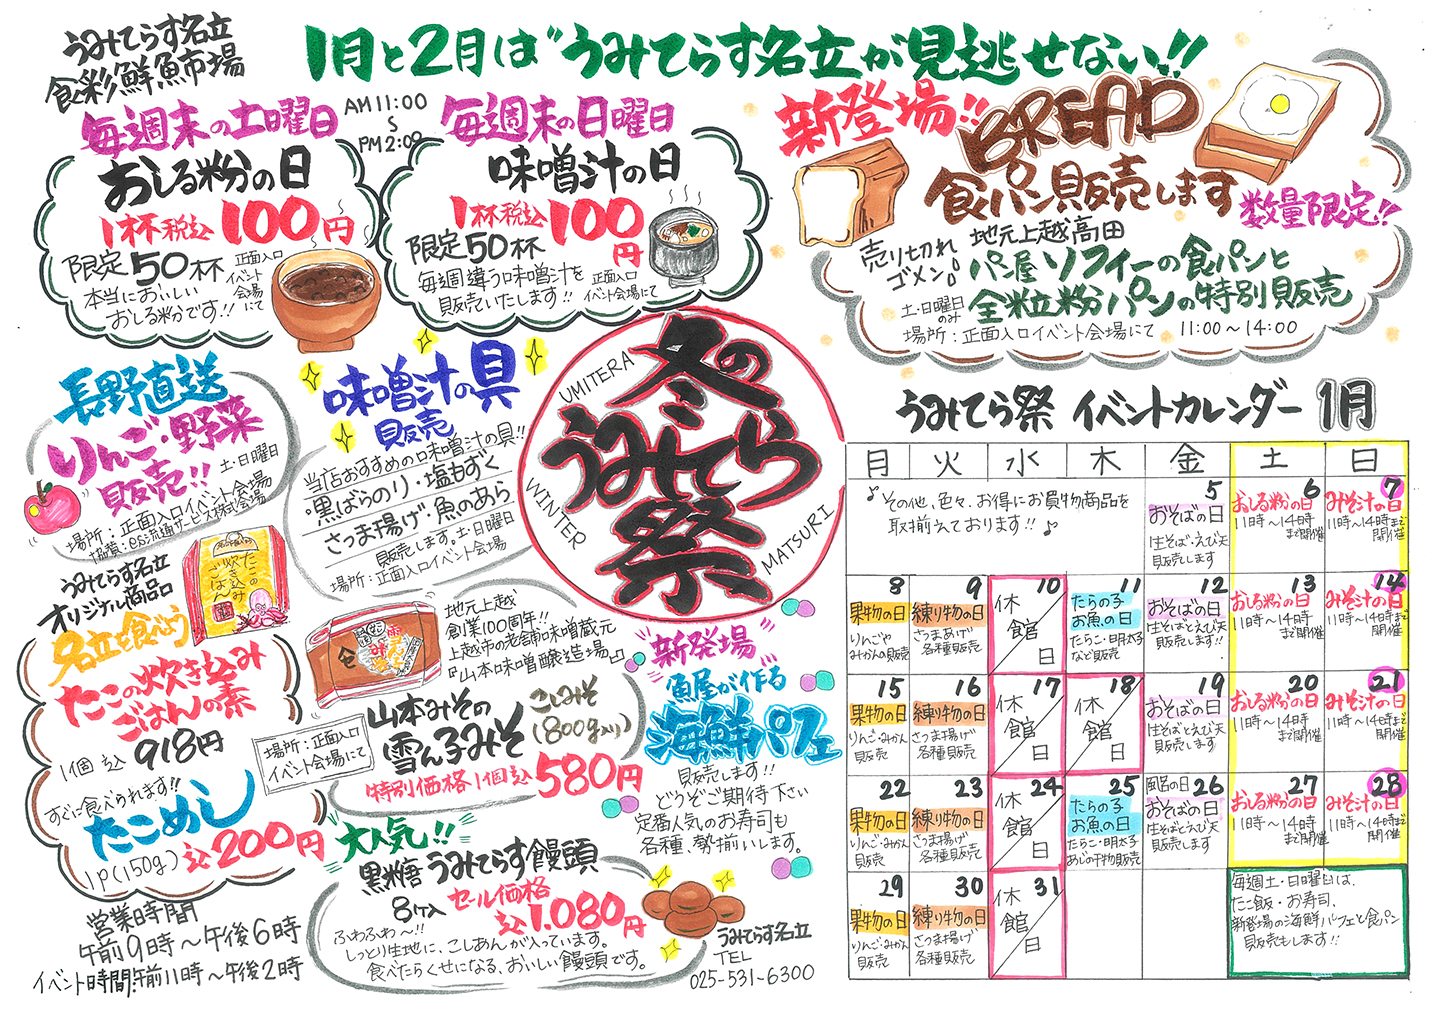 うみてらす名立
食彩鮮魚市場
1月と2月は"うみてらす名立が見逃せない!!
毎週末の土曜日
AM11:00
PM2:00
おしる粉の日
1杯税込100円
限定50杯
本当においしい
おしる粉です!!
正面入口
イベント
会場
にて
毎週末の日曜日
味噌汁の日
1杯税込100円
限定50杯
毎週違う味噌汁を
販売いたします!!
正面入口
イベント会場にて
新登場!!
BREAD
食パン販売します
数量限定!!
売り切れ
ゴメン
地元上越高田
パン屋ソフィーの食パンと
全粒粉パンの特別販売
土・日曜日
のみ
場所:正面入口イベント会場にて 11:00〜14:00
長野直送
りんご・野菜
販売!!
土・日曜日
場所:正面入口イベント会場
協賛:es流通サービス株式会社
味噌汁の具
販売
当店おすすめの味噌汁の具!!
・黒ばらのり・塩もずく
さつま揚げ・魚のあら
販売します。土・日曜日
場所:正面入口イベント会場
冬の
うみてら
祭
UMITERA
WINTER
MATSURI
うみてらす名立
オリジナル商品
名立を食べよう
たこの炊き込み
ごはんの素
1個 込 918円
たこの
炊き込み
ごはん
すぐに食べられます!!
たこめし
1P(150g) 込200円
地元上越
創業100周年!!
上越市の老舗の味噌蔵元
『山本味噌醸造場』
山本みその
雪ん子みそ
こしみそ
(800g入り)
特別価格1個込580円
場所:正面入口
イベント会場にて
新発場
魚屋が作る
海鮮パフェ
販売します!!
どうぞご期待下さい
定番人気のお寿司も
各種、勢揃いします。
大人気!!
黒糖うみてらす饅頭
8ケ入 セール価格
込1,080円
ふわふわ〜!!
しっとり生地に、こしあんが入っています。
食べたらくせになる、おいしい饅頭です。
営業時間
午前9時〜午後6時
イベント時間:午前11時〜午後2時
うみてらす名立
TEL
025-531-6300
うみてら祭 イベントカレンダー 1月
月 火 水 木 金 土 日
♪その他、色々、お得にお買物商品を
取揃えております!!♪
5
おそばの日
生そば・えび天
販売します
6
おしる粉の日
11時〜14時
まで開催
7
みそ汁の日
11時〜14時まで
開催
8
果物の日
りんごや
みかんの販売
9
練り物の日
さつまあげ
各種販売
10
休館日
11
たらの子
お魚の日
たらこ・明太子
など販売
12
おそばの日
生そばとえび天
販売します!!
13
おしる粉の日
11時〜14時
まで開催
14
みそ汁の日
11時〜14時まで
開催
15
果物の日
りんご・みかん
販売
16
練り物の日
さつま揚げ
各種販売
17
休館日
18
休館日
19
おそばの日
生そばとえび天
販売します
20
おしる粉の日
11時〜14時
まで開催
21
みそ汁の日
11時〜14時まで
開催
22
果物の日
りんご・みかん
販売
23
練り物の日
さつま揚げ
各種販売
24
休館日
25
たらの子
お魚の日
たらこ・明太子
あじの干物販売
26
風呂の日
おそばの日
生そばとえび天
販売します
27
おしる粉の日
11時〜14時
まで開催
28
みそ汁の日
11時〜14時まで
開催
29
果物の日
りんご・みかん
販売
30
練り物の日
さつま揚げ
各種販売
31
休館日
毎週土・日曜日は、
たこ飯・お寿司、
新登場の海鮮パフェと食パン
販売もします!!